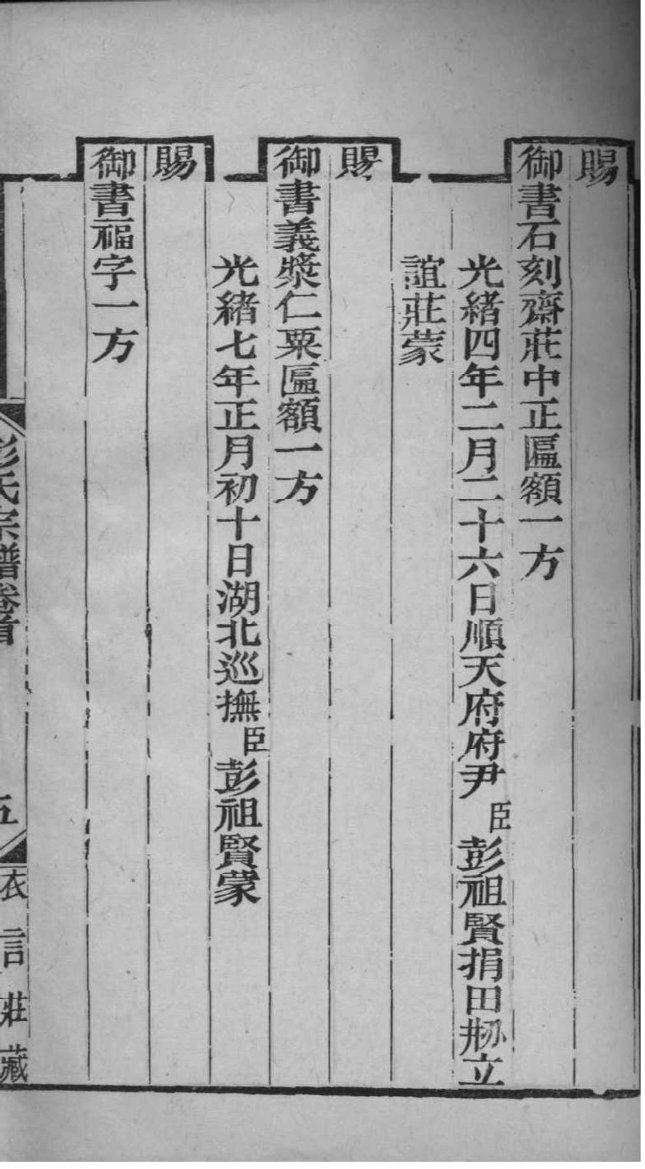 賜
御書石刻齋莊中正匾額一方
光緒四年二月二十六日順天府府尹臣彭祖賢捐田剏立
誼莊蒙
賜
御書義漿仁粟匾額一方
光緒七年正月初十日湖北巡撫臣彭祖賢蒙
賜
御書福字一方
彭氏宗譜卷首
五
衣言莊藏